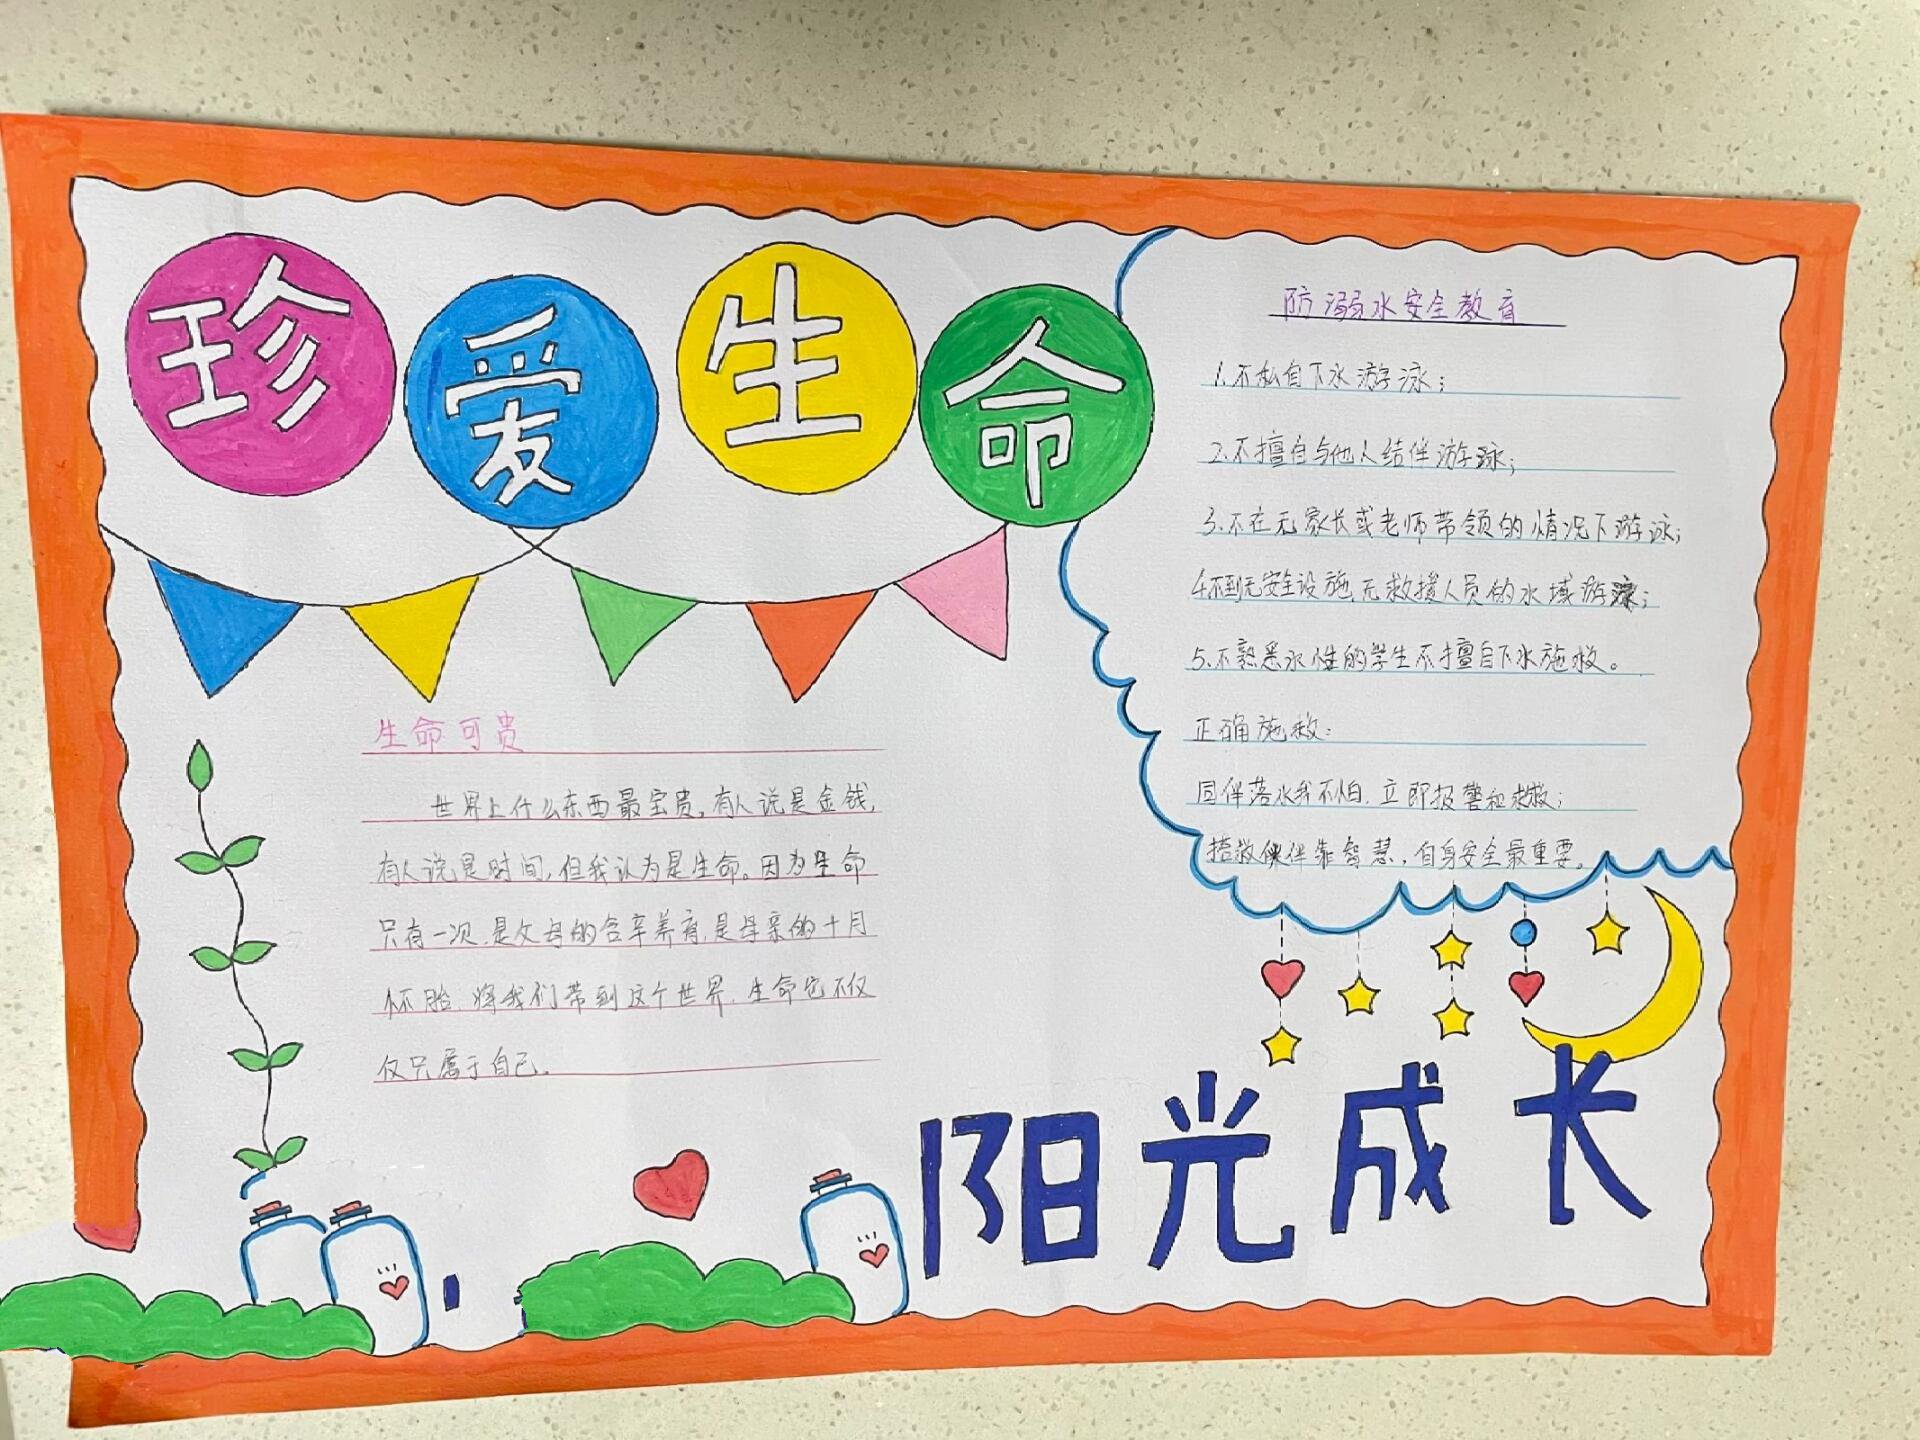 珍爱生命
防溺水安全教育
1.不私自下水游泳;
2.不擅自与他人结伴游泳;
3.不在无家长或老师带领的情况下游泳;
4.不到无安全设施、无救援人员的水域游泳;
5.不熟悉水性的学生不擅自下水施救。
正确施救:
同伴落水我不怕,立即报警和求救;
搭救伙伴靠智慧,自身安全最重要。
生命可贵
世界上什么东西最宝贵,有人说是金钱,
有人说是时间,但我认为是生命。因为生命
只有一次,是父母的含辛养育,是母亲的十月
怀胎,将我们带到这个世界,生命它不仅
仅只属于自己。
阳光成长